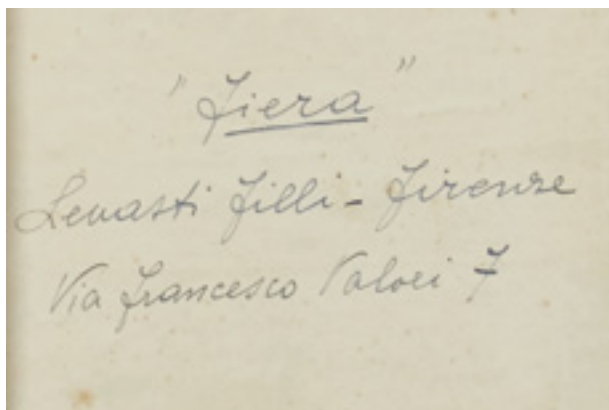 "Fiera"
Levasti Filli - Firenze
Via Francesco Valori 7